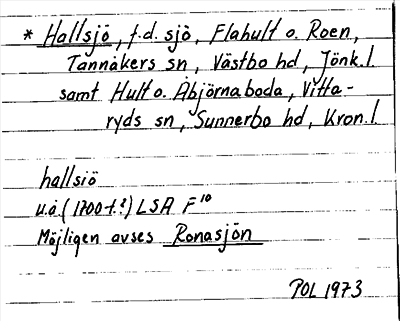 * Hallsjö, f.d. sjö, Flahult o. Roen,
Tannåkers sn, Västbo hd, Jönk. l
samt Hult o. Åbjörnaboda, Vitta-
ryds sn, Sunnerbo hd, Kron. l
hallsiö
u.å. (1700-t.?) LSA F10
Möjligen avses Ronasjön
POL 1973